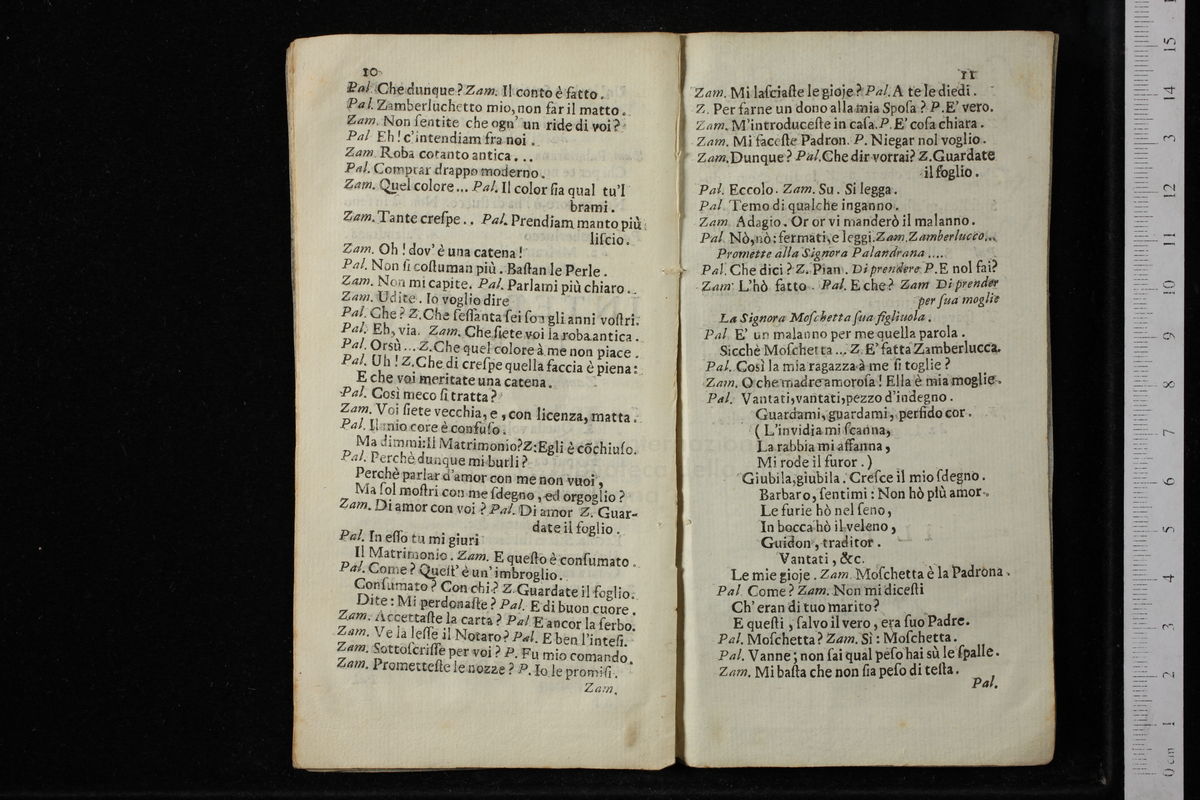 10
Pal. Che dunque? Zam. Il conto è fatto.
Pal. Zamberluchetto mio, non far il matto.
Zam. Non ſentite che ogn' un ride di voi?
Pal Eh! c'intendiam fra noi.
Zam. Roba cotanto antica...
Pal. Comprar drappo moderno.
Zam. Quel colore... Pal. Il color ſia qual tu'l
brami.
Zam. Tante creſpe.. Pal. Prendiam manto più
liſcio.
Zam. Oh! dov' è una catena!
Pal. Non ſi coſtuman più. Baſtan le Perle.
Zam. Non mi capite. Pal. Parlami più chiaro.
Zam. Udite. Io voglio dire
Pal. Che? Z. Che ſeſſanta ſei ſon gli anni voſtri.
Pal. Eh, via. Zam. Che ſiete voi la roba antica.
Pal. Orsù... Z. Che quel colore à me non piace.
Pal. Uh! Z. Che di creſpe quella faccia è piena:
E che voi meritate una catena.
Pal. Così meco ſi tratta?
Zam. Voi ſiete vecchia, e, con licenza, matta.
Pal. Il mio core è confuſo.
Ma dimmi: Il Matrimonio? Z: Egli è cõchiuſo.
Pal. Perchè dunque mi burli?
Perchè parlar d'amor con me non vuoi,
Ma ſol moſtri con me ſdegno, ed orgoglio?
Zam. Di amor con voi? Pal. Di amor Z. Guar-
date il foglio.
Pal. In eſſo tu mi giuri
Il Matrimonio. Zam. E queſto è conſumato.
Pal. Come? Queſt' è un' imbroglio.
Conſumato? Con chi? Z. Guardate il foglio.
Dite: Mi perdonaſte? Pal. E di buon cuore.
Zam. Accettaſte la carta? Pal E ancor la ſerbo.
Zam. Ve la leſſe il Notaro? Pal. E ben l'inteſi.
Zam. Sottoſcriſſe per voi? P. Fu mio comando.
Zam. Prometteſte le nozze? P. Io le promiſi.
Zam.
11
Zam. Mi laſciaſte le gioje? Pal. A te le diedi.
Z. Per farne un dono alla mia Spoſa? P. E' vero.
Zam. M'introduceſte in caſa. P. E' coſa chiara.
Zam. Mi faceſte Padron. P. Niegar nol voglio.
Zam. Dunque? Pal. Che dir vorrai? Z. Guardate
il foglio.
Pal. Eccolo. Zam. Su. Si legga.
Pal. Temo di qualche inganno.
Zam. Adagio. Or or vi manderò il malanno.
Pal. Nò, nò: fermati, e leggi. Zam. Zamberlucco...
Promette alla Signora Palandrana ....
Pal. Che dici? Z. Pian. Di prendere P. E nol fai?
Zam. L'hò fatto. Pal. E che? Zam Di prender
per ſua moglie
La Signora Moſchetta ſua figliuola.
Pal. E' un malanno per me quella parola.
Sicchè Moſchetta ... Z. E' fatta Zamberlucca.
Pal. Così la mia ragazza à me ſi toglie?
Zam. O che madre amoroſa! Ella è mia moglie.
Pal. Vantati, vantati, pezzo d'indegno.
Guardami, guardami, perfido cor.
(L'invidia mi ſcanna,
La rabbia mi affanna,
Mi rode il furor.)
Giubila, giubila. Creſce il mio ſdegno.
Barbaro, ſentimi: Non hò più amor.
Le furie hò nel ſeno,
In bocca hò il veleno,
Guidon, traditor.
Vantati, &c.
Le mie gioje. Zam. Moſchetta è la Padrona.
Pal. Come? Zam. Non mi diceſti
Ch' eran di tuo marito?
E queſti, ſalvo il vero, era ſuo Padre.
Pal. Moſchetta? Zam. Sì: Moſchetta.
Pal. Vanne; non ſai qual peſo hai sù le ſpalle.
Zam. Mi baſta che non ſia peſo di teſta.
Pal.